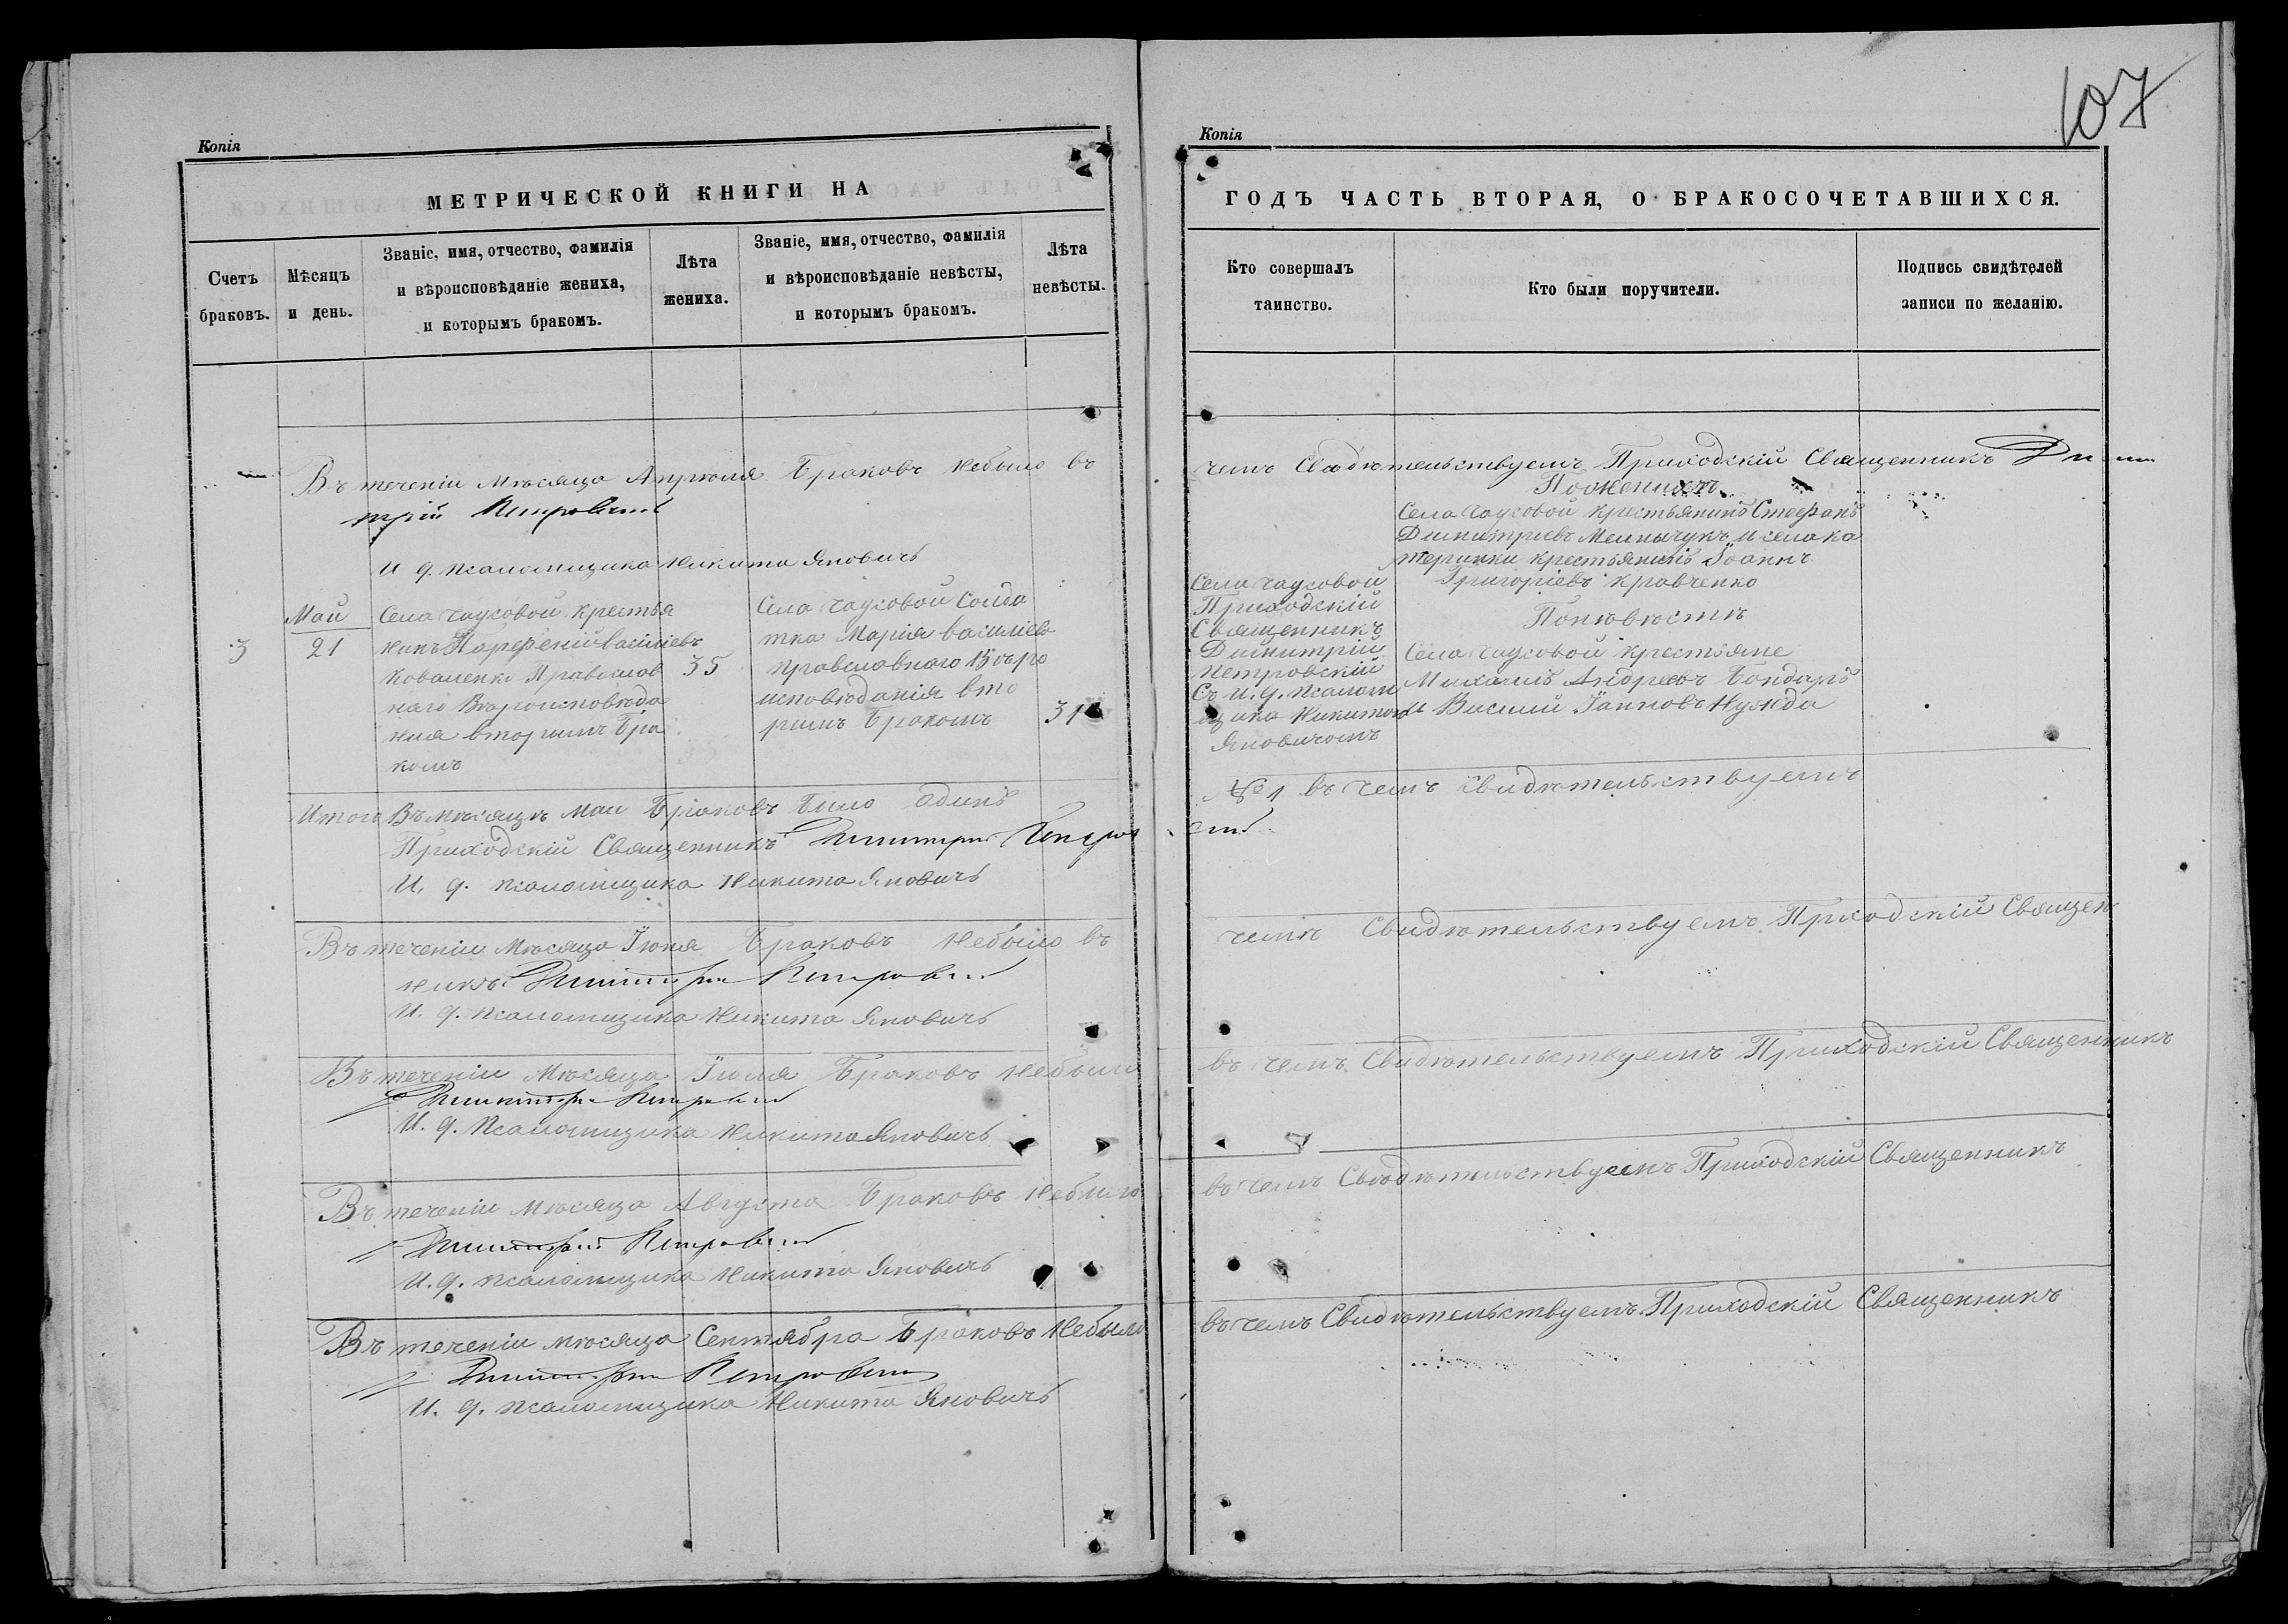 107
Копія
МЕТРИЧЕСКОЙ КНИГИ НА
Счетъ браковъ.
Мѣсяцъ и день.
Званіе, имя, отчество, фамилія
и вѣроисповѣданіе жениха,
и которымъ бракомъ.
Лѣта жениха.
Званіе, имя, отчество, фамилія
и вѣроисповѣданіе невѣсты,
и которымъ бракомъ.
Лѣта невѣсты.
Въ теченіи мѣсяца Апрѣля Браковъ небыло въ
трій Петровскій
И. д. псаломщика Никита Яновичъ
3
Май
21
Села Чаусовой крестья
нинъ Парфеній Василіевъ
Коваленко Православ
наго Вѣроисповѣда
нія вторымъ бра
комъ
35
Села Чаусовой Солда
тка Марія Василіева
православнаго Вѣро
исповѣданія вто
рымъ Бракомъ
31
Итого Въ мѣсяцѣ Маи Браковъ Было одинъ
Приходскій Священникъ Димитрій Петров
И. д. псаломщика Никита Яновичъ
Въ теченіи мѣсяца Іюня Браковъ небыло въ
никъ Димитрій Петровскій
И. д. псаломщика Никита Яновичъ
Въ теченіи мѣсяца Іюля Браковъ небыло
Димитрій Петровскій
И. д. псаломщика Никита Яновичъ
Въ теченіи мѣсяца Августа Браковъ небыло
Димитрій Петровскій
И. д. псаломщика Никита Яновичъ
Въ теченіи мѣсяца Сентября Браковъ небыло
Димитрій Петровскій
И. д. псаломщика Никита Яновичъ
Копія
ГОДЪ ЧАСТЬ ВТОРАЯ, О БРАКОСОЧЕТАВШИХСЯ.
Кто совершалъ
таинство.
Кто были поручители.
Подпись свидѣтелей
записи по желанію.
чемъ Свидѣтельствуемъ Приходскій Священникъ Дими
По женихѣ
Села Чаусовой крестьянинъ Стефанъ
Димитріевъ Мельничукъ и села Ка
теринки крестьянинъ Іоаннъ
Григоріевъ Кравченко
Села Чаусовой
Приходскій
Священникъ
Димитрій
Петровскій
Съ И. д. псалом
щика Никитою
Яновичомъ
По невѣстѣ
Села Чаусовой крестьяне
Михаилъ Андреевъ Бондарь
и Василій Іаиновъ Нужда
№ 1 въ чемъ Свидѣтельствуемъ
скій
чемъ Свидѣтельствуемъ Приходскій Священ
въ чемъ Свидѣтельствуемъ Приходскій Священникъ
въ чемъ Свидѣтельствуемъ Приходскій Священникъ
въ чемъ Свидѣтельствуемъ Приходскій Священникъ